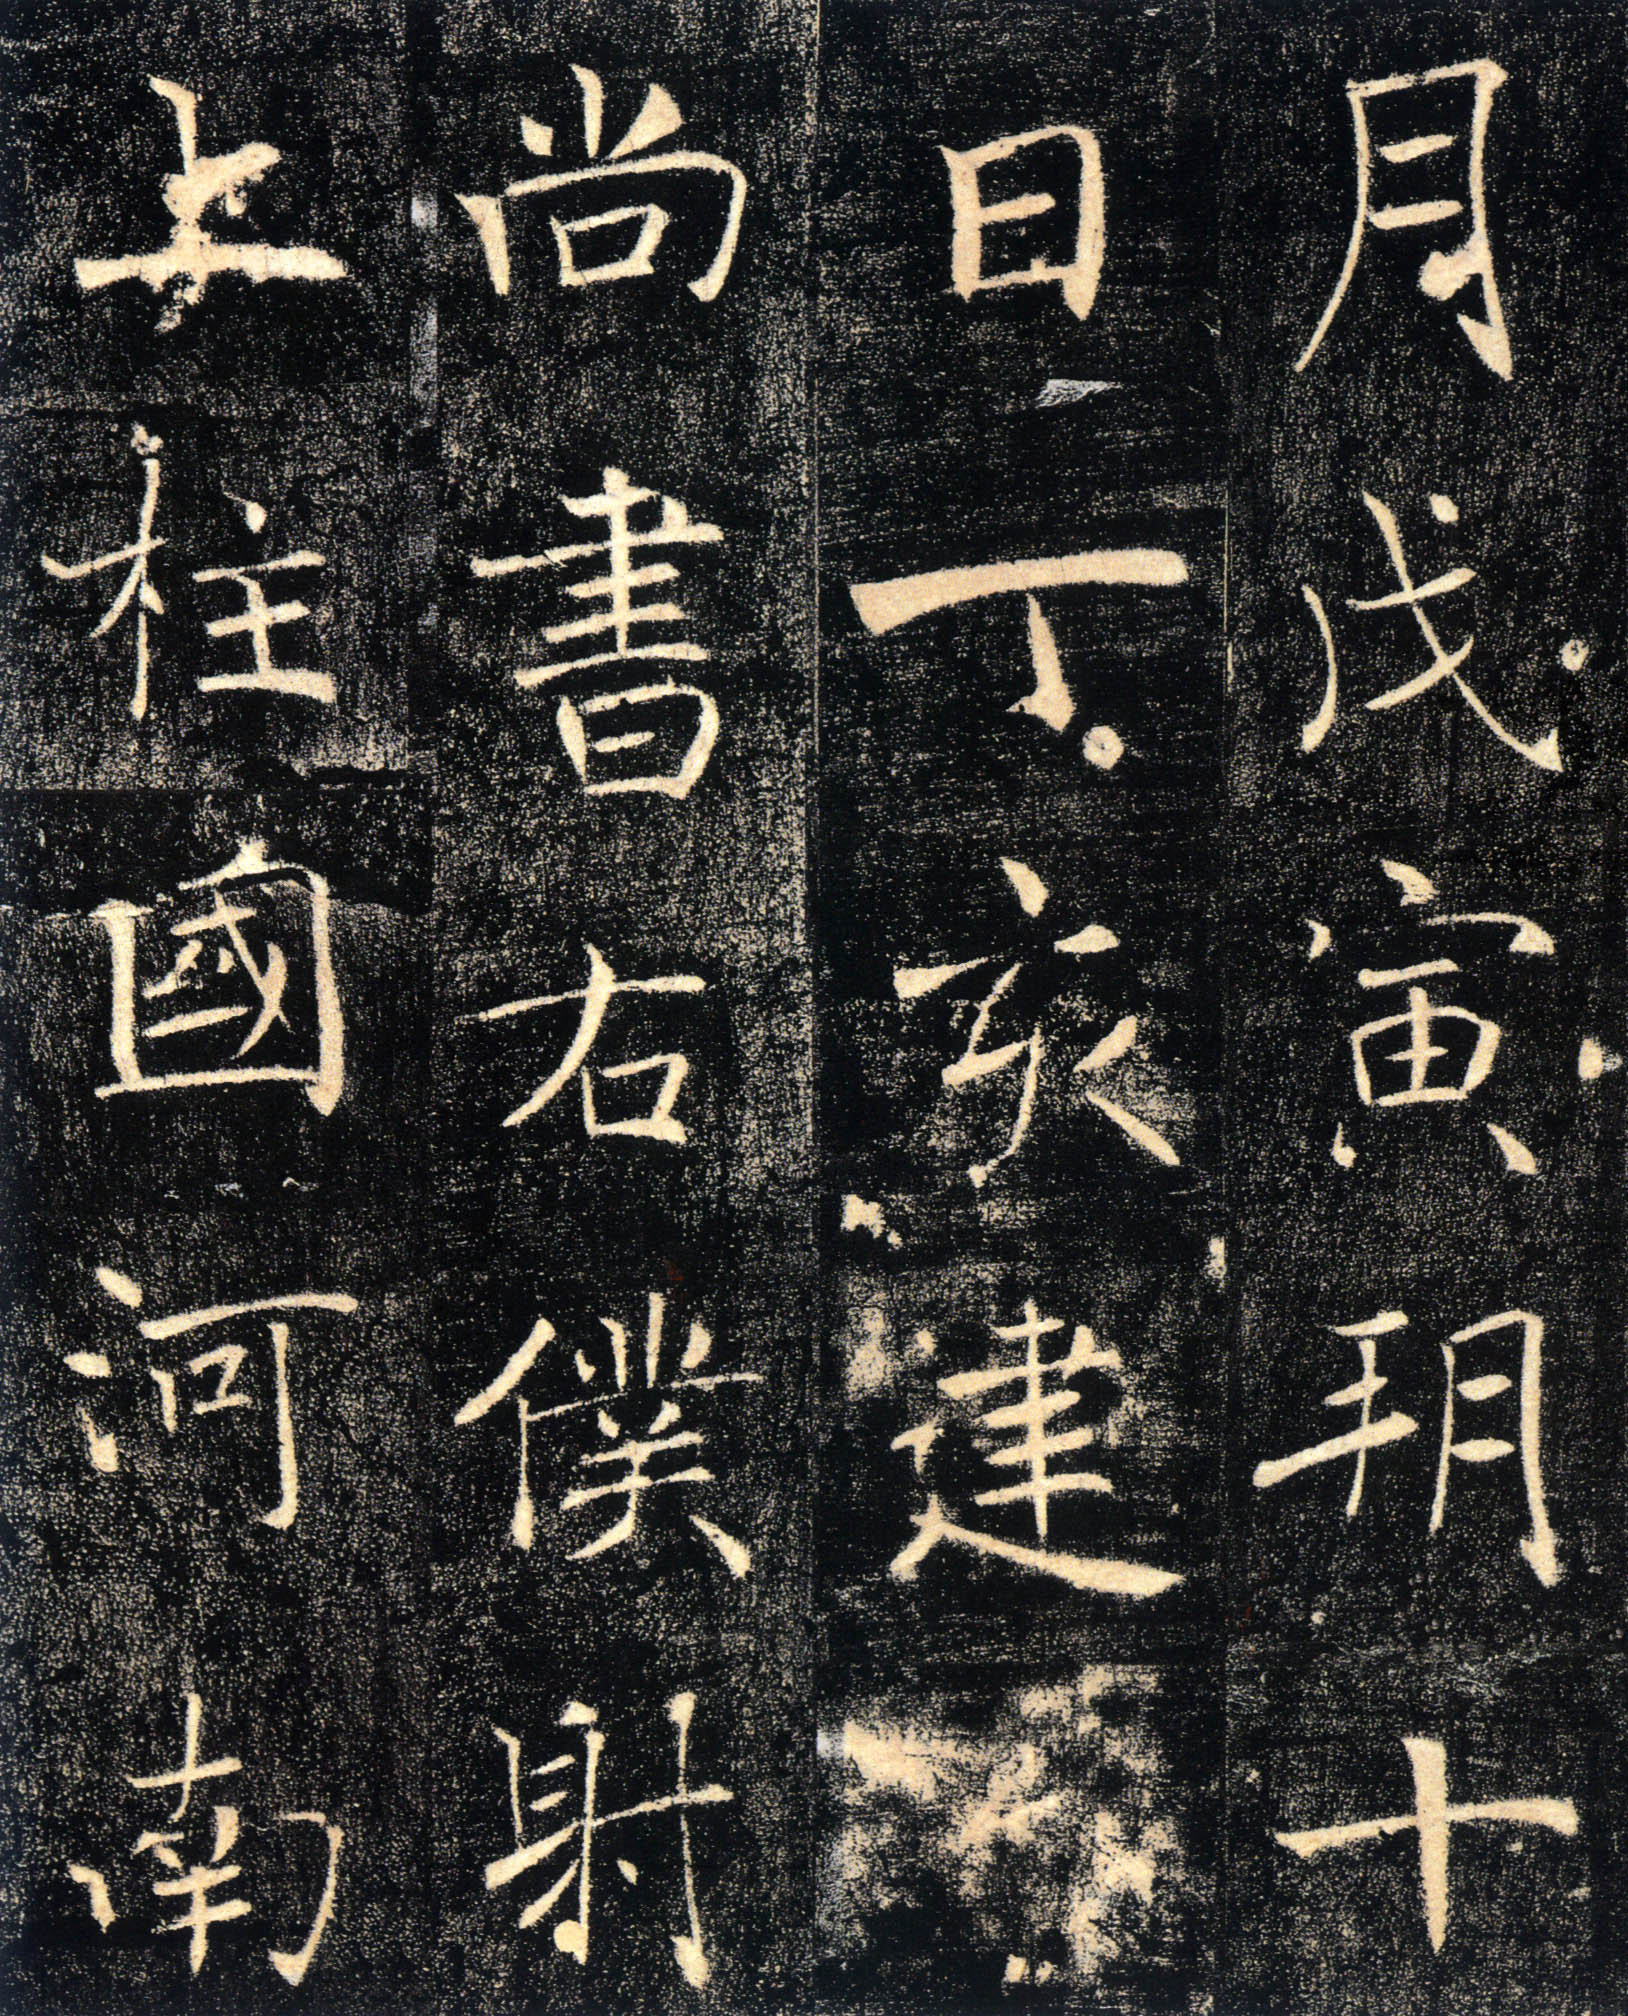 月戊寅朔十
日丁亥建
尚書右僕射
上柱國河南